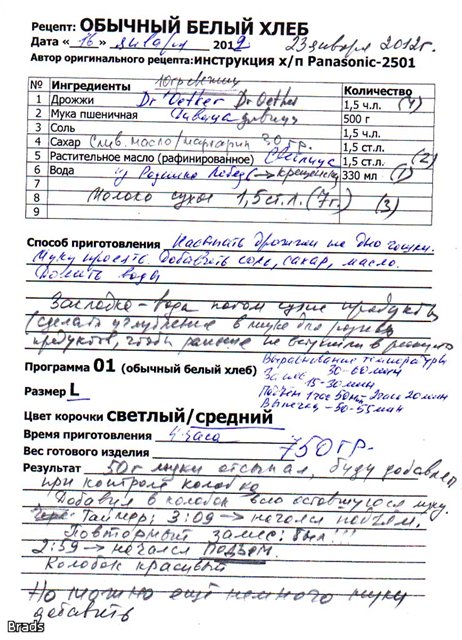 Рецепт: ОБЫЧНЫЙ БЕЛЫЙ ХЛЕБ
Дата « 16 » января 2012 23 января 2012г.
Автор оригинального рецепта: инструкция х/п Panasonic-2501
№ Ингредиенты Количество
1 Дрожжи Dr Oetker Dr Oetker 1,5 ч.л. (4)
2 Мука пшеничная 500 г
3 Соль 1,5 ч.л.
4 Сахар слив. масло/маргарин 30 гр. 1,5 ст.л.
5 Растительное масло (рафинированное) 1,5 ст.л. (2)
6 Вода 330 мл (1)
7
8 Молоко сухое 1,5 ст.л. (7г.) (3)
9
Способ приготовления Насыпать дрожжи на дно
Муку просеять. Добавить соль, сахар, масло.
Долить воды
Закладка – вода потом сухие продукты
(сделать углубление в муке для
продуктов, чтобы раньше не вступили в реакцию
Программа 01 (обычный белый хлеб)
Выравнивание температуры
30-60 мин
Замес 15-30 мин
Размер L
Подъем 1 час 50 мин - 2 часа 20 мин
Выпечка - 50-55 мин
Цвет корочки светлый/средний
Время приготовления 4 часа
Вес готового изделия 750 гр.
Результат 50 г муки отсыпал, буду добавлять
при контроле колобка
Добавил в колобок всю оставшуюся муку.
Таймер: 3:09 → начался подъем.
Повторный замес: был!!!
2:59 → начался подъем.
Колобок красивый
Но можно ещё немного муки
добавить
Brads